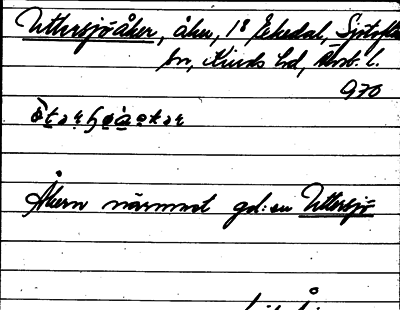 Uttersjöåker, åker, 1 8 Ekedal, Sjötofta
sn, Kinds hd, Älvsb. l.
970
Åkern närmast gd:en Uttersjö